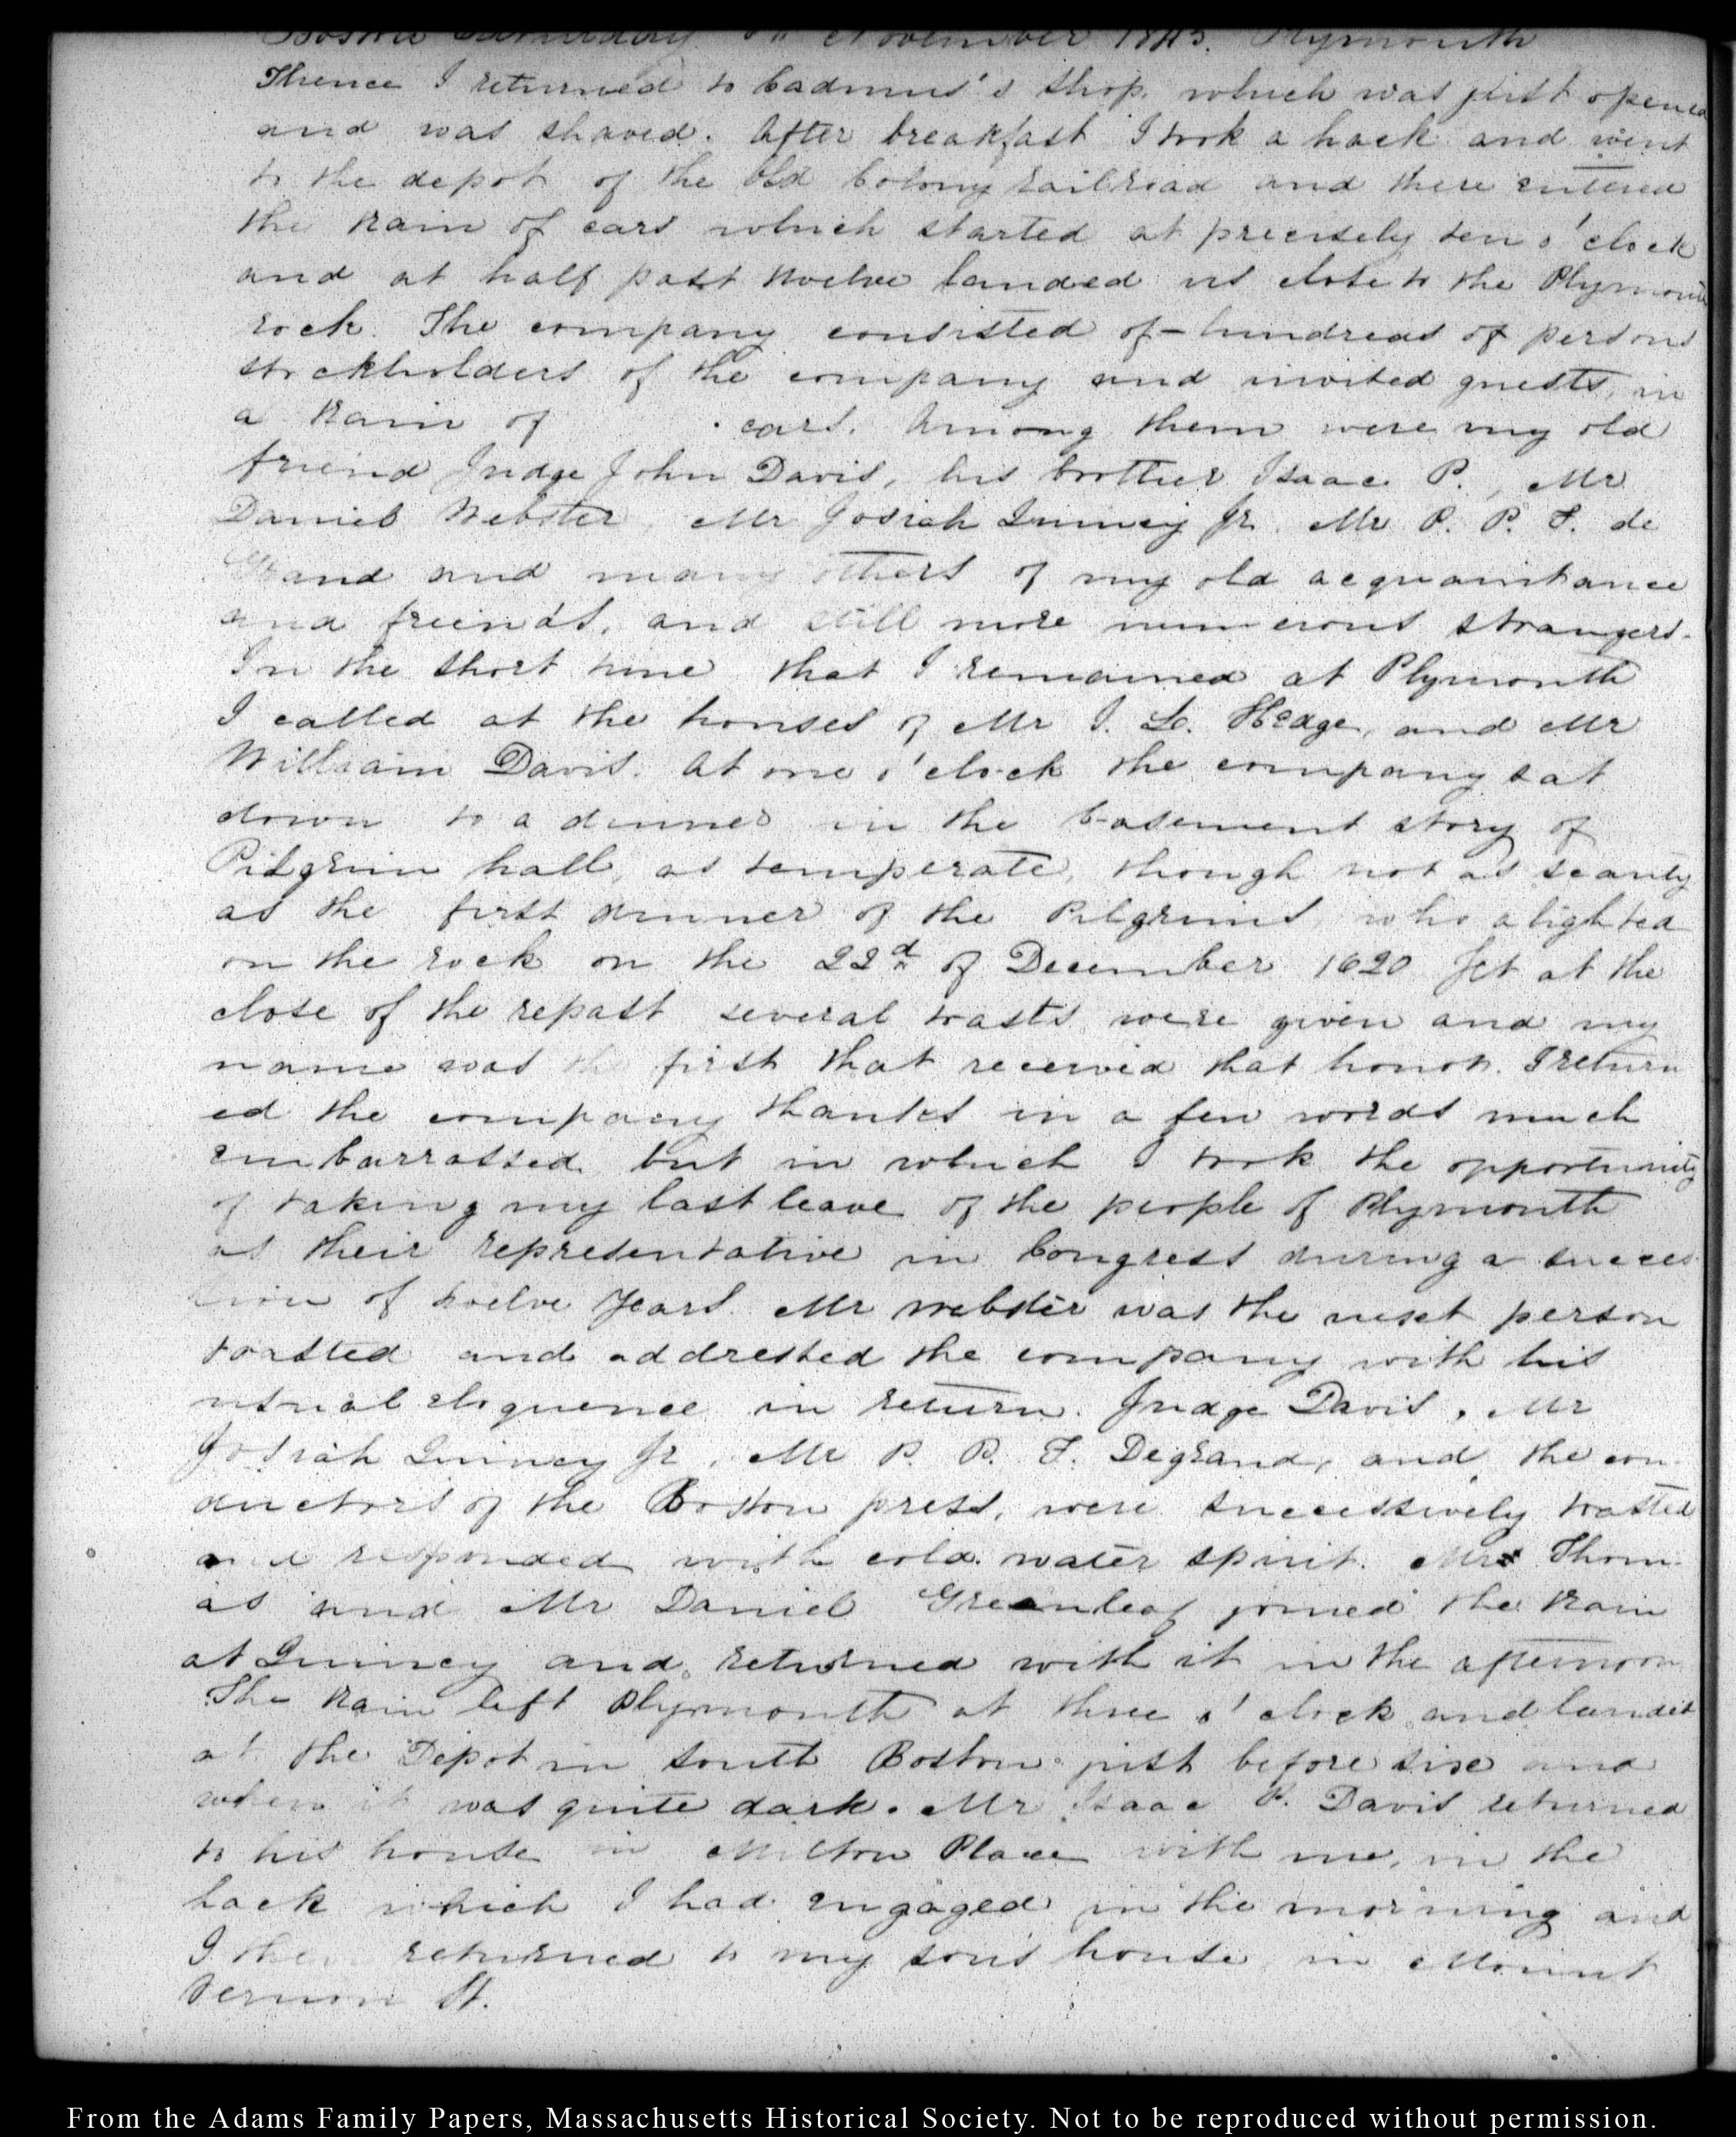 Boston Saturday November 1845. Plymouth
Thence I returned to Cadmus's shop. which was just opened
and was shaved. After breakfast I took a hack and went
to the depot of the Old Colony railroad and there entered
the train of cars which started at precisely ten o'clock
and at half past twelve landed us close to the Plymouth
rock. The company consisted of – hundreds of persons
stockholders of the company and invited guests, in
a train of cars. Among them were my old
friend Judge John Davis, his brother Isaac P., Mr
Daniel Webster, Mr Josiah Quincy Jr. Mr P. P. F. de
Grand and many others of my old acquaintance
and friends, and still more numerous strangers.
In the short time that I remained at Plymouth
I called at the houses of Mr I. L. Hedge, and Mr
William Davis. At one o'clock the company sat
down to a dinner in the basement story of
Pilgrim hall, as temperate, though not as scanty
as the first dinner of the Pilgrims who alighted
on the rock on the 22d of December 1620 Yet at the
close of the repast several toasts were given and my
name was the first that received that honor. I return
ed the company thanks in a few words much
embarrassed but in which I took the opportunity
of taking my last leave of the people of Plymouth
as their representative in Congress during a succes
sion of twelve years. Mr Webster was the next person
toasted and addressed the company with his
usual eloquence in return. Judge Davis, Mr
Josiah Quincy Jr, Mr P. P. F. Degrand, and the con-
ductors of the Boston press, were successively toasted
and responded with cold water spirit. Mrs Thom-
as and Mr Daniel Greenleaf joined the train
at Quincy and returned with it in the afternoon
The train left Plymouth at three o'clock and landed
at the Depot in South Boston just before six and
when it was quite dark. Mr Isaac P. Davis returned
to his house in Milton Place with me, in the
hack which I had engaged in the morning and
I then returned to my son's house in Mount
Vernon St.
From the Adams Family Papers, Massachusetts Historical Society. Not to be reproduced without permission.